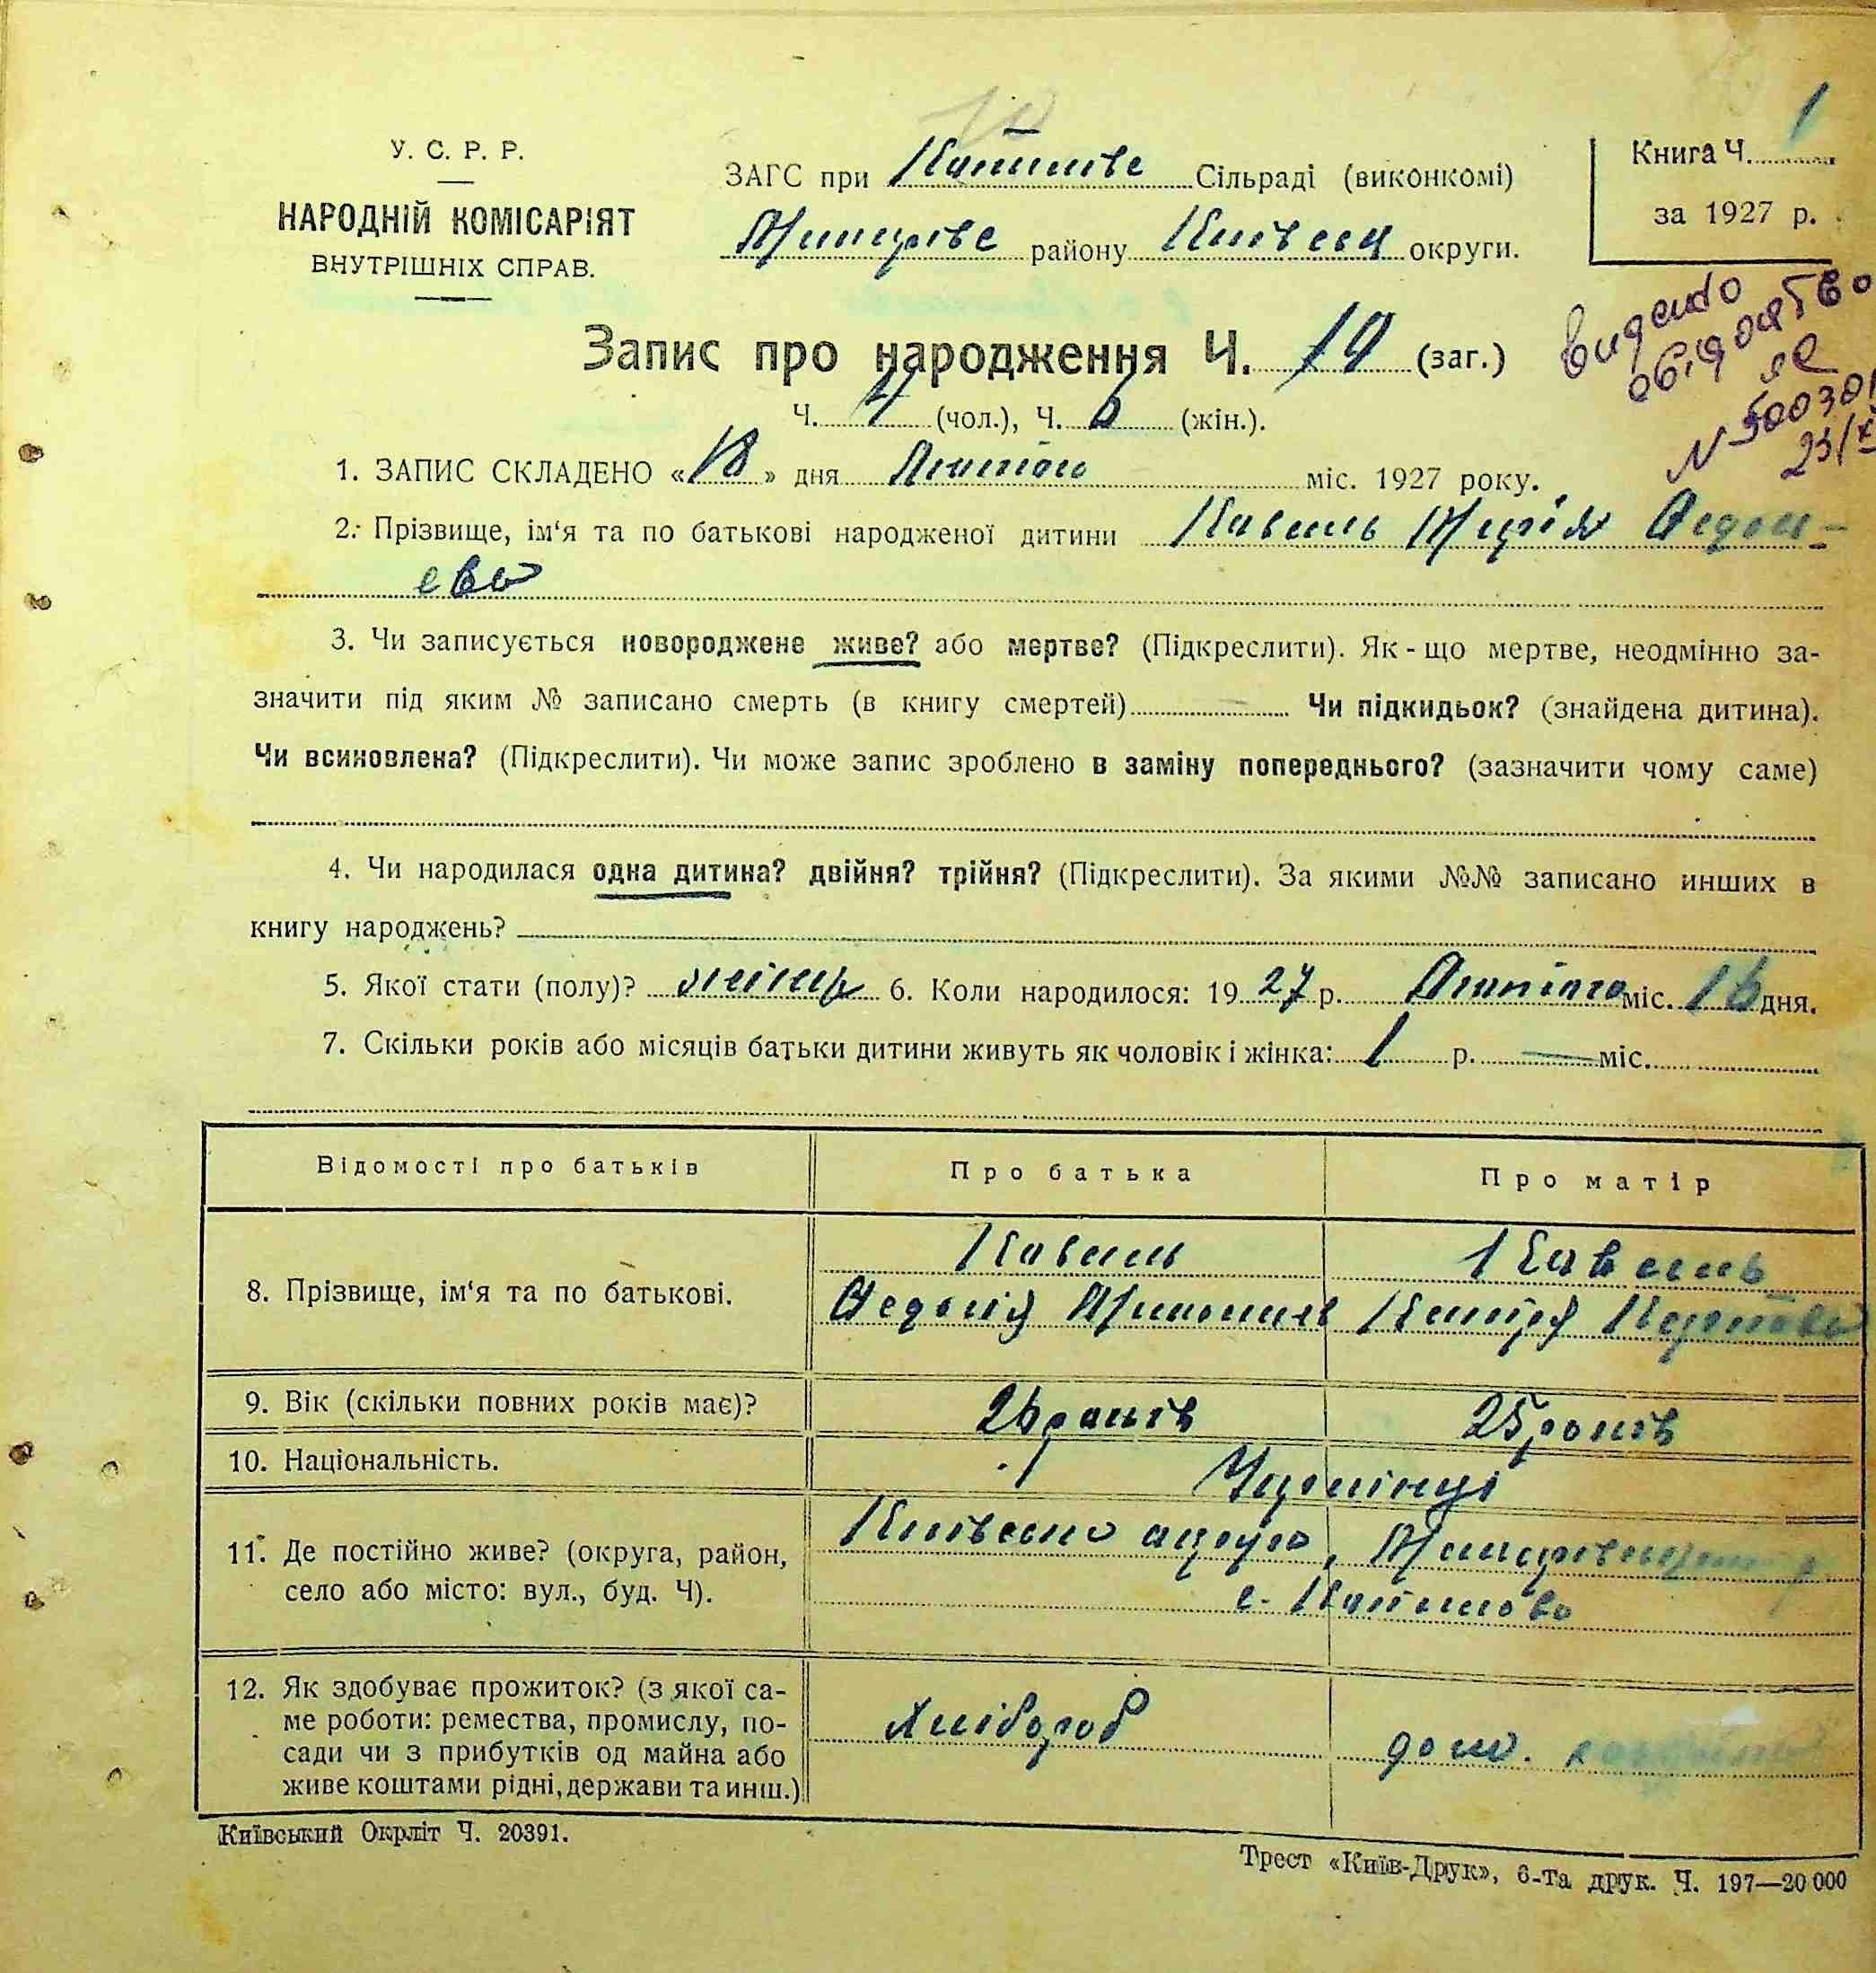 У. С. Р. Р.
НАРОДНІЙ КОМІСАРІЯТ
ВНУТРІШНІХ СПРАВ.
ЗАГС при Сільраді (виконкомі)
району округи.
Книга Ч. 1
за 1927 р.
видано
свідоцтво
Запис про народження Ч. 19 (заг.)
Ч. (чол.), Ч. (жін.).
1. ЗАПИС СКЛАДЕНО «18» дня Лютого міс. 1927 року.
2. Прізвище, ім'я та по батькові народженої дитини Марія
3. Чи записується новороджене живе? або мертве? (Підкреслити). Як-що мертве, неодмінно за-
значити під яким № записано смерть (в книгу смертей) — Чи підкидьок? (знайдена дитина).
Чи всиновлена? (Підкреслити). Чи може запис зроблено в заміну попереднього? (зазначити чому саме)
4. Чи народилася одна дитина? двійня? трійня? (Підкреслити). За якими №№ записано инших в
книгу народжень?
5. Якої стати (полу)? 6. Коли народилося: 1927 р. Лютого міс. 16 дня.
7. Скільки років або місяців батьки дитини живуть як чоловік і жінка: 1 р. — міс.
Відомості про батьків Про батька Про матір
8. Прізвище, ім'я та по батькові.
9. Вік (скільки повних років має)? 26 років 25 років
10. Національність. Українці
11. Де постійно живе? (округа, район, Київська округа,
село або місто: вул., буд. Ч). с.
12. Як здобуває прожиток? (з якої са- Хлібороб
ме роботи: ремества, промислу, по- дом.
сади чи з прибутків од майна або
живе коштами рідні, держави та инш.)
Київський Окрліт Ч. 20391.
Трест «Київ-Друк», 6-та друк. Ч. 197—20 000